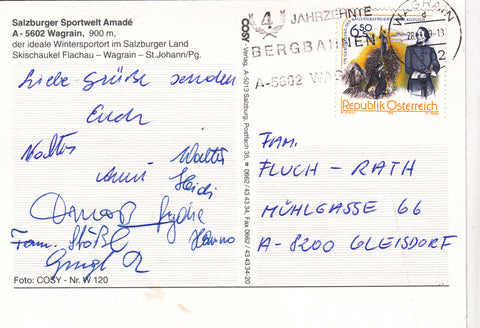 Salzburger Sportwelt Amadé
A - 5602 Wagrain, 900 m,
der ideale Wintersportort im Salzburger Land
Skischaukel Flachau – Wagrain – St.Johann/Pg.
Liebe Grüße senden
Euch
Walter
Walter
Anni Heidi
Lydia
Fam. Stößl Hanno
Foto: COSY - Nr. W 120
COSY - Verlag, A-5013 Salzburg, Postfach 35, ☎ 0662 / 43 43 34, Fax 0662 / 43 43 34-20
4 JAHRZEHNTE
BERGBAHNEN
A-5602 WAG
WAGRAIN
6.50
Republik Österreich
FAM.
FLUCH - RATH
MÜHLGASSE 66
A - 8200 GLEISDORF